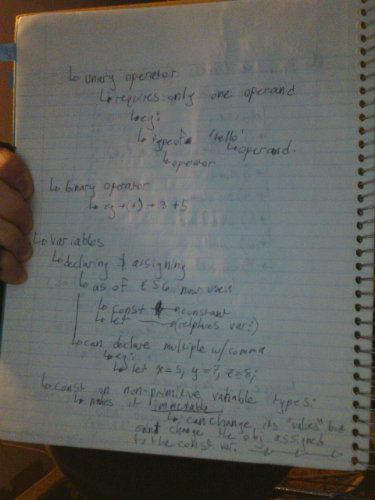 ↳ unary operator
↳ requires only one operand
↳ eg:
↳ typeof 'hello'
↳ operand.
↳ operator
↳ binary operator
↳ eg → (+) → 3 + 5
↳ variables
↳ declaring & assigning
↳ as of ES6 now uses
↳ const constant
↳ let (replaces var?)
↳ can declare multiple w/ comma
↳ eg:
↳ let x = 5, y = 7, z = 8;
↳ const on non-primitive variable types:
↳ makes it immutable
↳ can change its "values" but
can't change the obj assigned
to the const var.